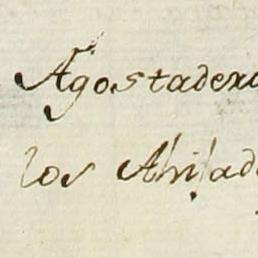 Agostadero
los Ahijad